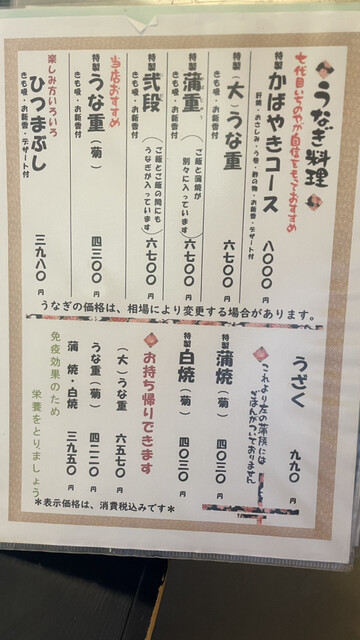 うなぎ料理
七代目いちのやが自信をもっておすすめ
特製 かばやきコース 八〇〇〇円
肝焼・おさしみ・う巻・酢の物・お新香・デザート付
特製（大）うな重 六七〇〇円
きも吸・お新香付
特製 蒲重（ご飯と蒲焼が別々に入っています） 六七〇〇円
きも吸・お新香付
特製 弐段（ご飯とご飯の間にもうなぎが入っています） 六七〇〇円
きも吸・お新香付
当店おすすめ
特製 うな重（菊） 四三〇〇円
きも吸・お新香付
楽しみ方いろいろ
ひつまぶし 三九八〇円
きも吸・お新香・デザート付
うなぎの価格は、相場により変更する場合があります。
うざく 九九〇円
これより左の蒲焼には
ごはんがついておりません
特製 蒲焼（菊） 四〇三〇円
特製 白焼（菊） 四〇三〇円
お持ち帰りできます
（大）うな重 六五七〇円
うな重（菊） 四二二〇円
蒲焼・白焼 三九五〇円
免疫効果のため
栄養をとりましょう
＊表示価格は、消費税込みです＊